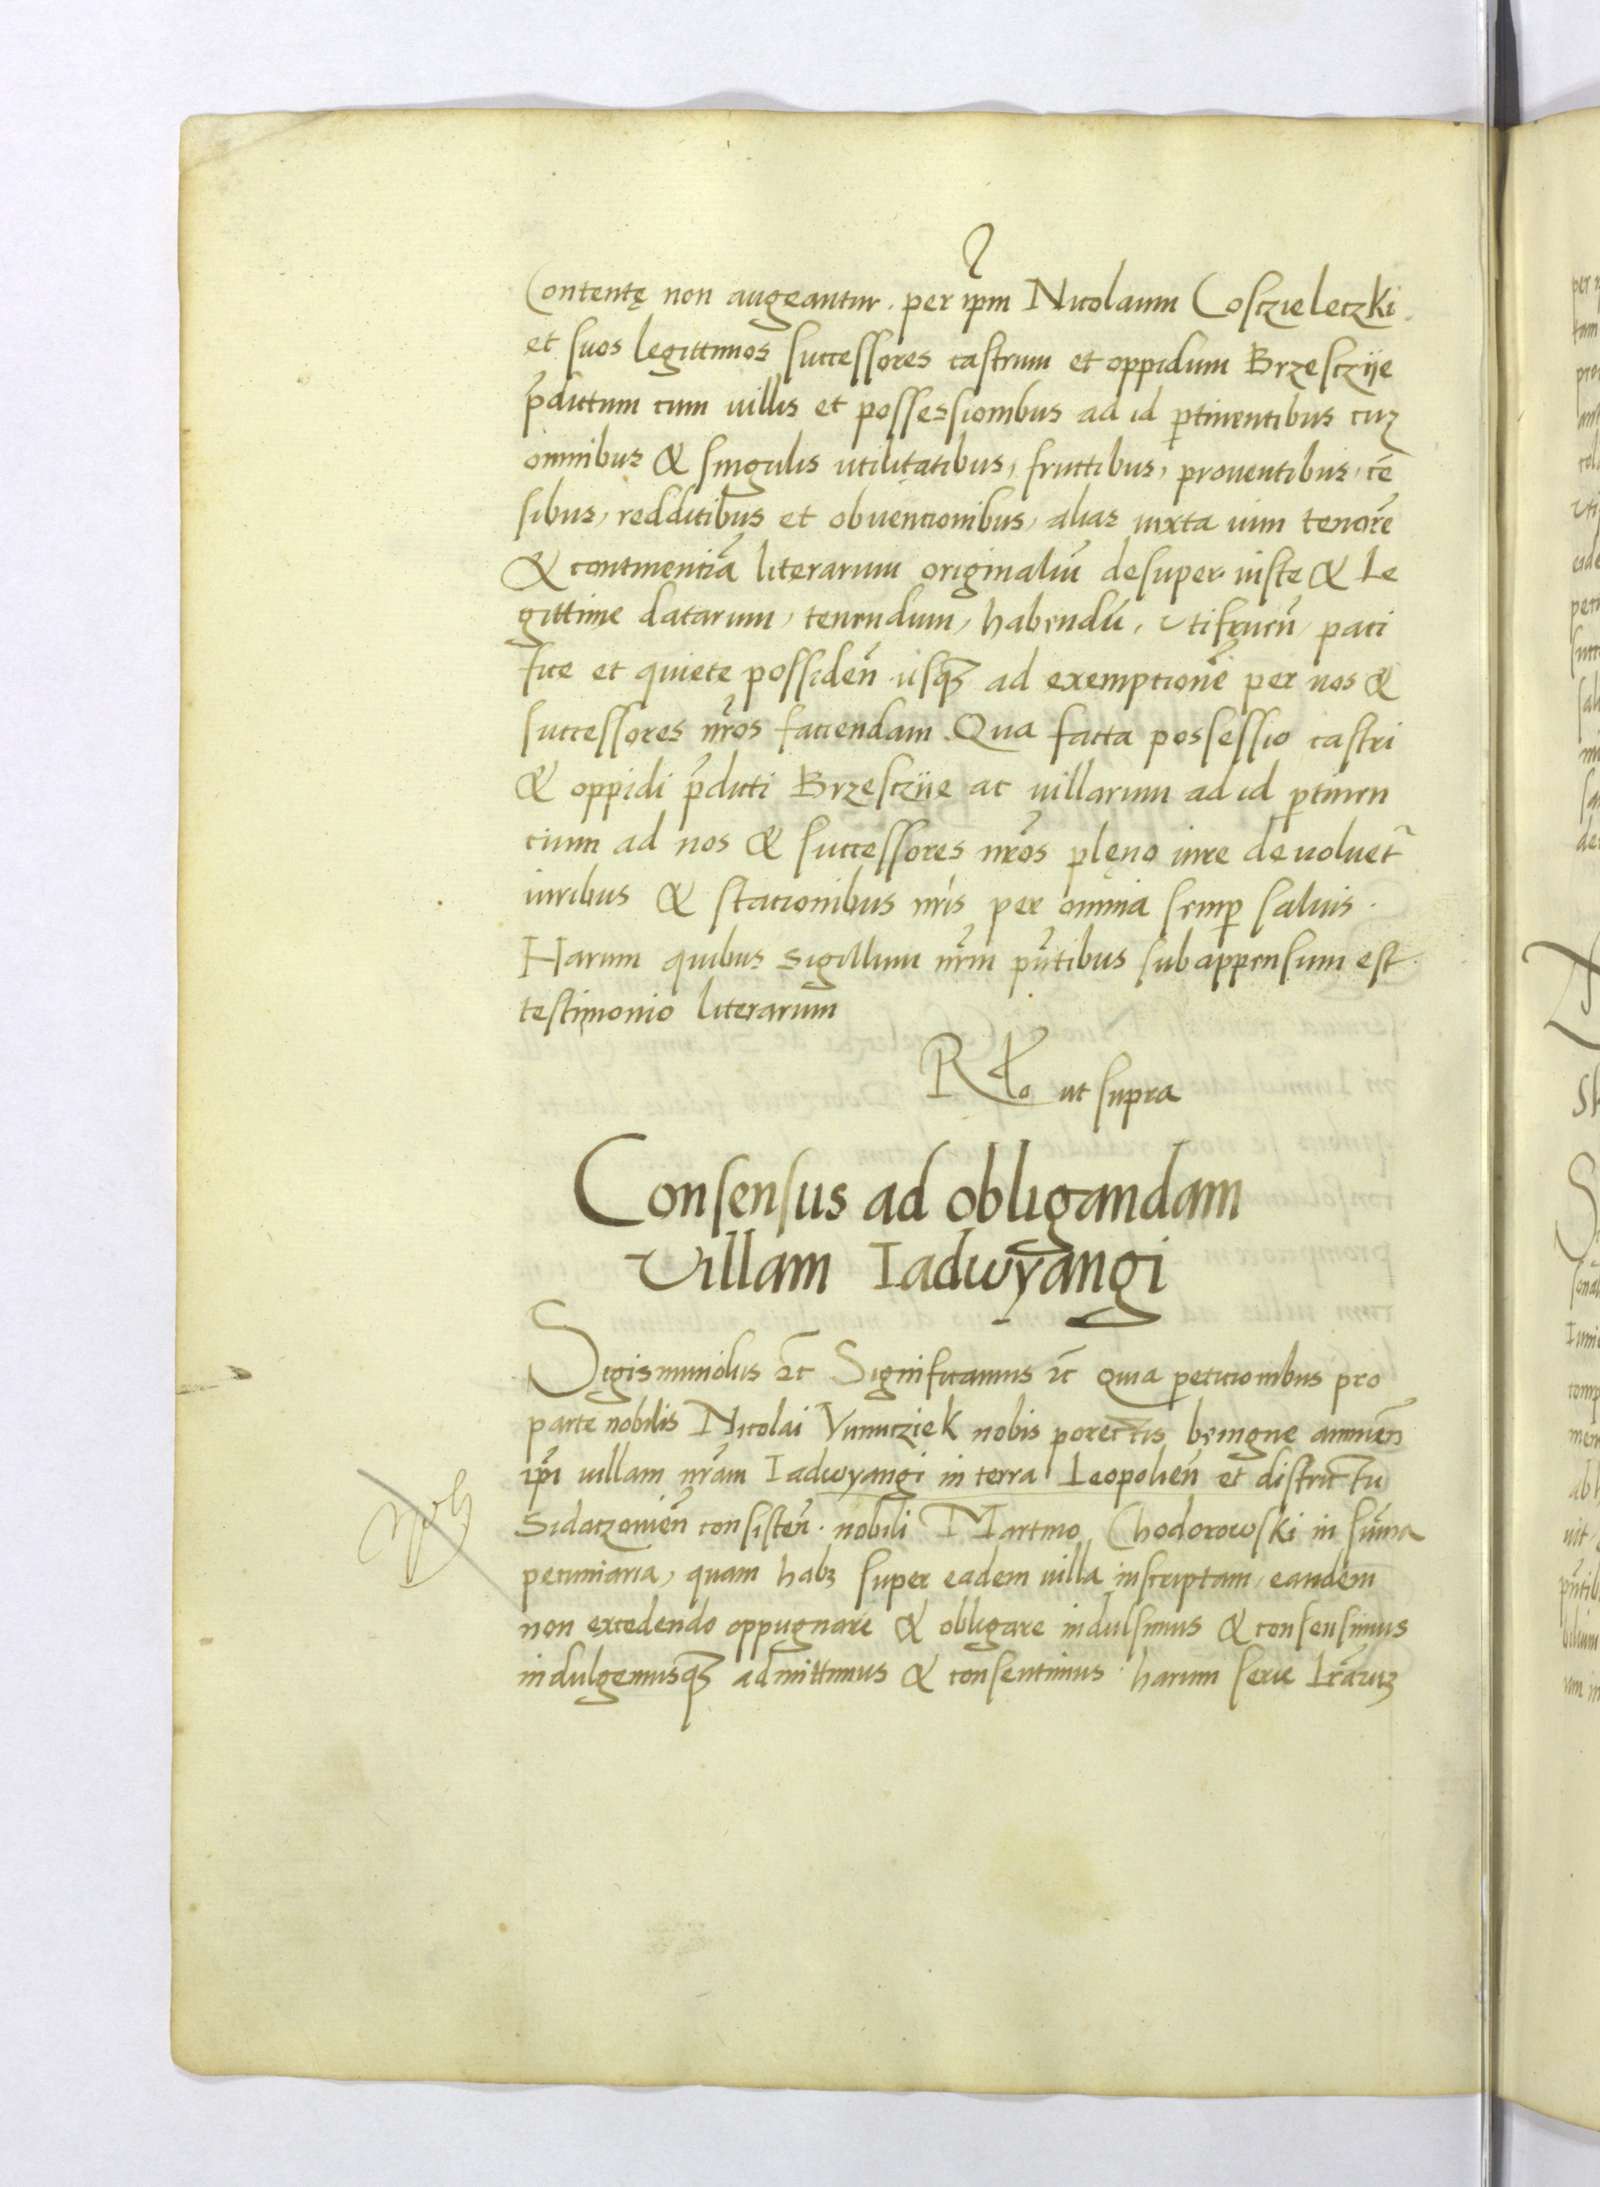 Contentę non augeantur. per ip̄m Nicolaum Cosczieleczki.
et suos legittimos successores castrum et oppidum Brzesczije
p̄dictum cum uillis et possessionibus ad id ꝑtinentibus cuꝫ
omnibus & singulis utilitatibus, fructibus, prouentibus, cē
sibus, redditibus et obuencionibus, alias iuxta uim tenorē
& continentiā literarum originaliū desuper iuste & Le
gittime datarum, tenendum, habendū, Vtifruen̄, paci
fice et quiete possiden̄ usqꝫ ad exempcionē per nos &
successores nr̄os faciendam. Qua facta possessio castri
& oppidi p̄dicti Brzesczije ac uillarum ad id ꝑtinen
cium ad nos & successores nr̄os plęno iure deuoluet̄
iuribus & stacionibus nr̄is per omnia semꝑ saluis.
Harum quibus sigillum nr̄m pn̄tibus subappensum est
testimonio literarum
Rlo ut supra
Consensus ad obligandam
Villam Iadwyangi
Sigismundus ⁊c̄ Significamus ⁊c̄ Quia peticionibus pro
parte nobilis Nicolai Vunucziek nobis porectis benigne annuen̄
ip̄i uillam nr̄am Iadwyangi in terra Leopolien̄ et districtu
Sidaczouien̄ consisten̄. nobili Martino Chodorowski in sūma
pecuniaria, quam habꝫ super eadem uilla inscriptam, eandem
non excedendo oppugnare & obligare indulsimus & consensimus
indulgemusqꝫ admittimus & consentimus. harum serie Lr̄aruꝫ